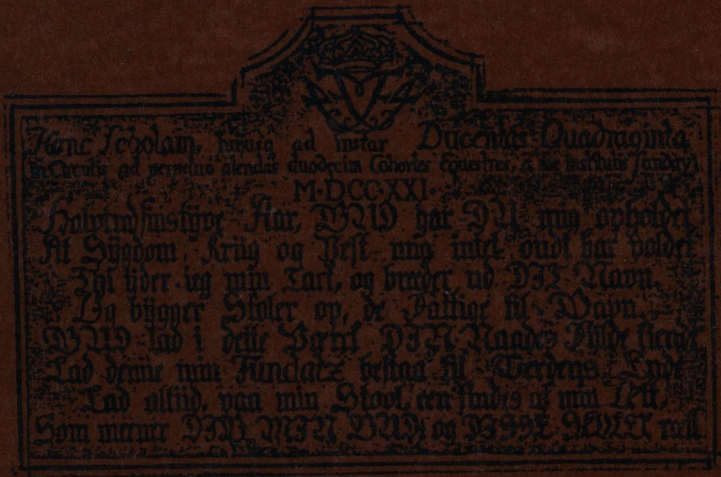 Hanc Scholam, hujusq ad instar Ducentas Quadraginta
in Circulis ad perpetuo alendas duodecim Cohortes Equestres, a Se institutis fundavit
M·DCC·XXI·
Halvtredsinstyve Aar, GUD har DU mig opholdet
At Sÿgdom, Kriig og Pest mig intet ondt har voldet
Thi ÿder jeg min Tack, og breeder ud DIT Navn.
Og bÿgger Skoler op, de Fattige til Gavn.
GUD lad i dette Værck DIN Naades Fÿlde kiende
Lad denne min Fundatz bestaa til Verdens Ende
Lad altid, paa min Skool, een findes af min Ætt,
Som meener DIG MIN GUD og DISSE SKOLER rætt.